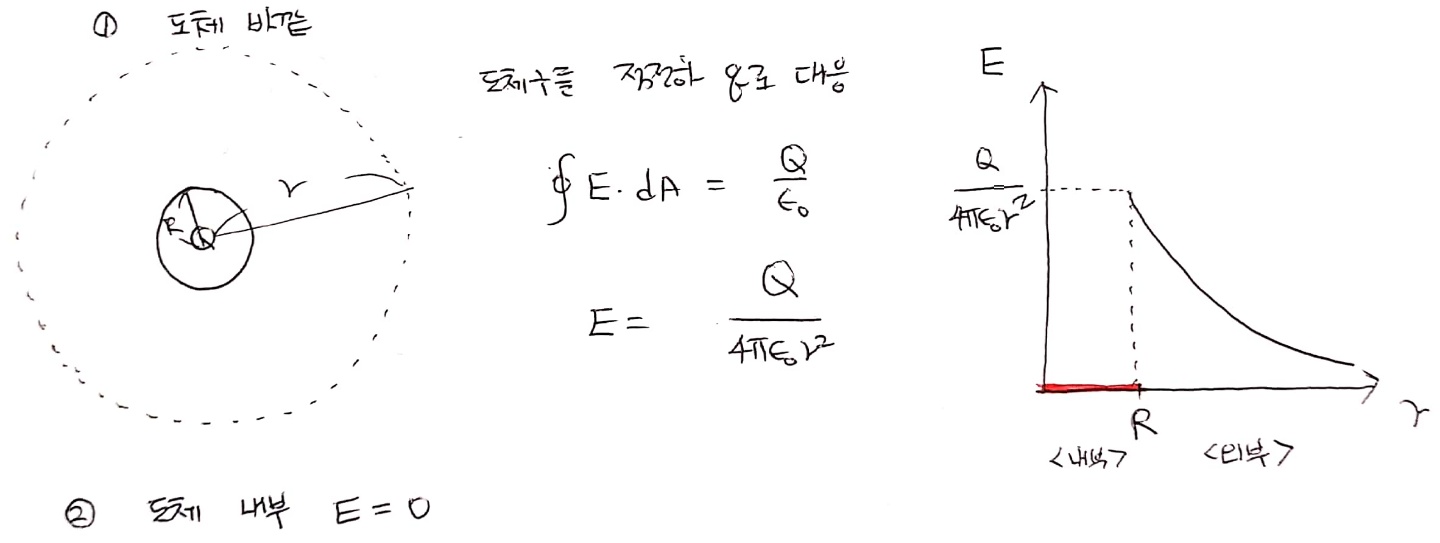 ① 도체 바깥
r
R
도체구를 점전하 Q로 대응
∮ E · dA = Q/ε₀
E = Q/4πε₀r²
E
Q/4πε₀r²
R
r
<내부> <외부>
② 도체 내부 E = 0